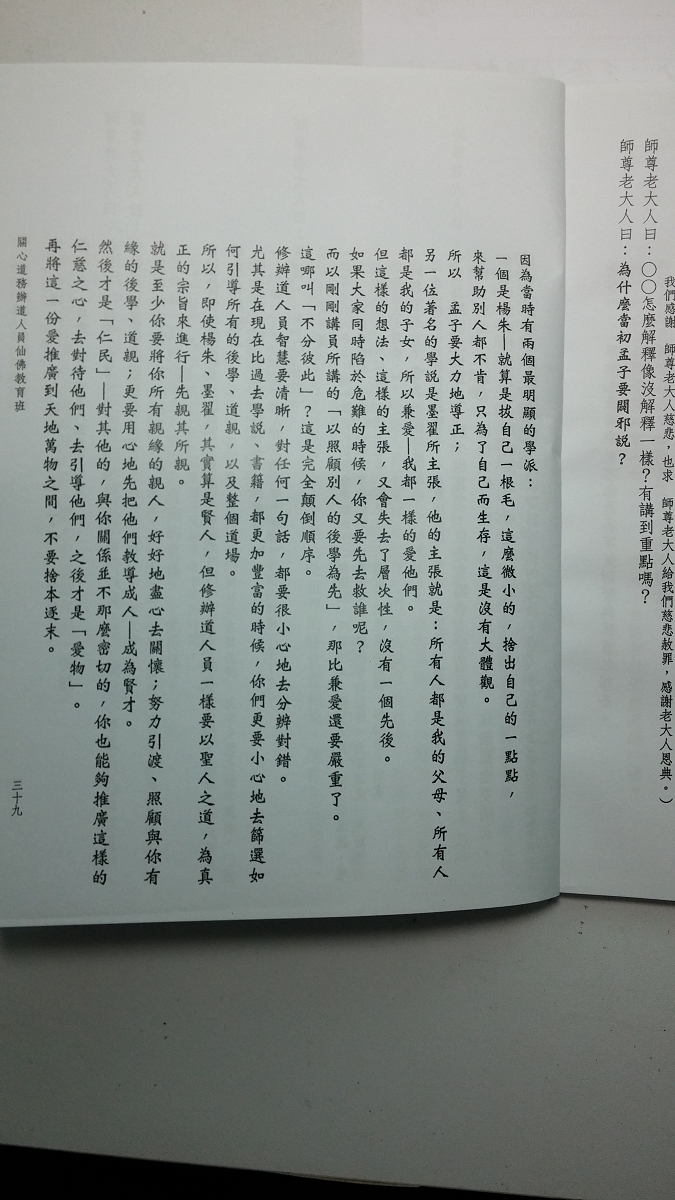 我們感謝　師尊老大人慈悲，也求　師尊老大人給我們慈悲赦罪，感謝老大人恩典。）
師尊老大人曰：〇〇怎麼解釋像沒解釋一樣？有講到重點嗎？
師尊老大人曰：為什麼當初孟子要闢邪說？
因為當時有兩個最明顯的學派：
一個是楊朱—就算是拔自己一根毛，這麼微小的，捨出自己的一點點，
來幫助別人都不肯，只為了自己而生存，這是沒有大體觀。
所以　孟子要大力地導正；
另一位著名的學說是墨翟所主張，他的主張就是：所有人都是我的父母、所有人
都是我的子女，所以兼愛—我都一樣的愛他們。
但這樣的想法、這樣的主張，又會失去了層次性，沒有一個先後。
如果大家同時陷於危難的時候，你又要先去救誰呢？
而以剛剛講員所講的「以照顧別人的後學為先」，那比兼愛還要嚴重了。
這哪叫「不分彼此」？這是完全顛倒順序。
修辦道人員智慧要清晰，對任何一句話，都要很小心地去分辨對錯。
尤其是在現在比過去學說、書籍，都更加豐富的時候，你們更要小心地去篩選如
何引導所有的後學、道親，以及整個道場。
所以，即使楊朱、墨翟，其實算是賢人，但修辦道人員一樣要以聖人之道，為真
正的宗旨來進行—先親其所親。
就是至少你要將你所有親緣的親人，好好地盡心去關懷；努力引渡、照顧與你有
緣的後學、道親；更要用心地先把他們教導成人—成為賢才。
然後才是「仁民」—對其他的，與你關係並不那麼密切的，你也能夠推廣這樣的
仁慈之心，去對待他們、去引導他們，之後才是「愛物」。
再將這一份愛推廣到天地萬物之間，不要捨本逐末。
關心道務辦道人員仙佛教育班
三十九